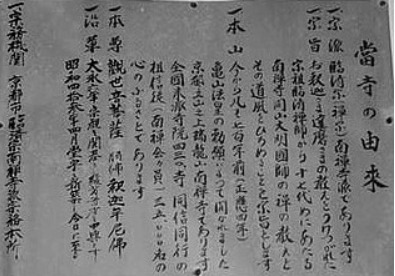 當寺の由来
一宗派 臨済宗(禅宗)南禅寺派であります
一宗旨 お釈迦さま達磨さまの教えをうけつがれた
宗祖臨済禅師から十七代めにあたる
南禅寺開山大明国師の禅の教えと
その道風をひろめることを宗旨とします
一本山 今から凡そ七百年前(正應四年)
亀山法皇の勅願によって開かれました
京都東山の瑞龍山南禅寺であります
全国末派寺院四三〇寺 同信同行の
檀信徒(南禅会会員)一三五〇〇〇名の
心のふるさとであります
一本尊 觀世音菩薩 脇佛 釈迦牟尼佛
一沿革 大永六年
昭和四十三年四月堂宇を新築 今日に至る
一宗務機関 京都市 臨済宗南禅寺派宗務本所